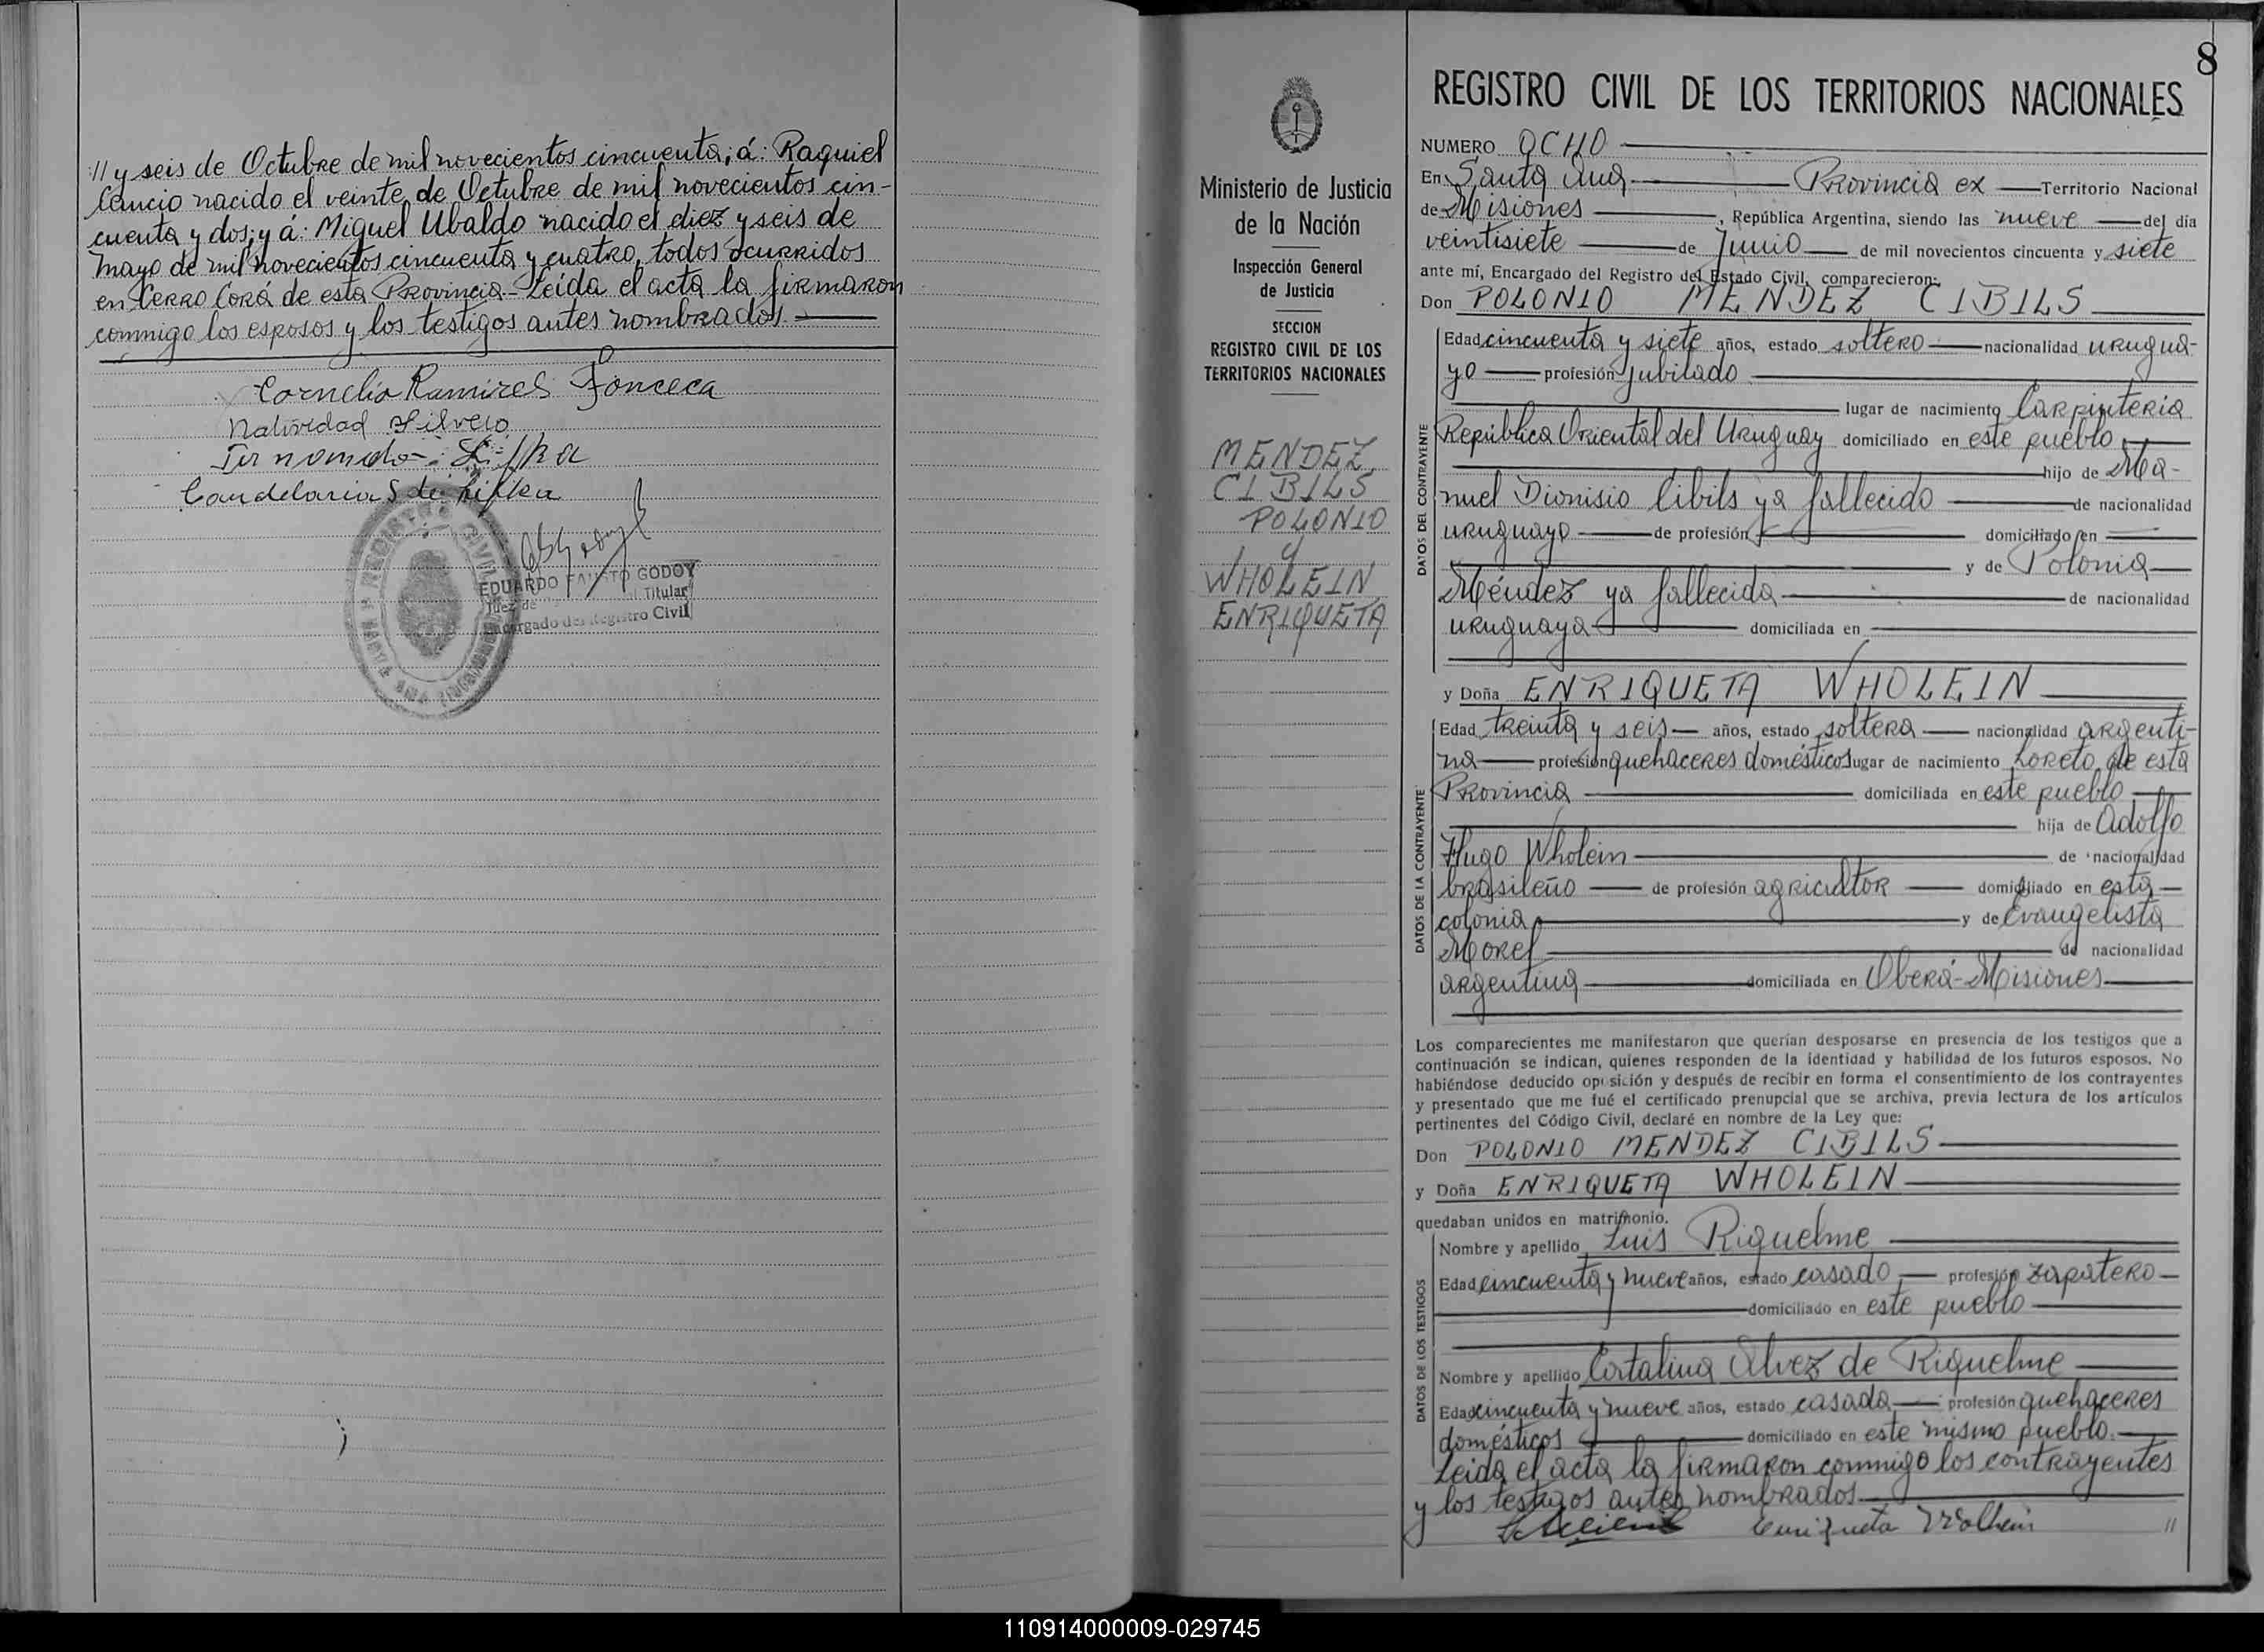 // y seis de Octubre de mil novecientos cincuenta; á: Raquiel
Cancio nacido el veinte de Octubre de mil novecientos cin-
cuenta y dos; y á: Miguel Ubaldo nacido el diez y seis de
mayo de mil novecientos cincuenta y cuatro, todos ocurridos
en Cerro Corá de esta Provincia - Leída el acta la firmaron
conmigo los esposos y los testigos antes nombrados.
Cornelio Ramirez Fonceca
Natividad Silvero
Candelaria S de Lifka
REGISTRO CIVIL
EDUARDO FAUSTO GODOY
Juez de Titular
Encargado del Registro Civil
Ministerio de Justicia
de la Nación
Inspección General
de Justicia
SECCION
REGISTRO CIVIL DE LOS
TERRITORIOS NACIONALES
MENDEZ
CIBILS
POLONIO
y
WHOLEIN
ENRIQUETA
8
REGISTRO CIVIL DE LOS TERRITORIOS NACIONALES
NUMERO OCHO
En Santa Ana Provincia ex Territorio Nacional
de Misiones, República Argentina, siendo las nueve del día
veintisiete de Junio de mil novecientos cincuenta y siete
ante mí, Encargado del Registro del Estado Civil, comparecieron:
Don POLONIO MENDEZ CIBILS
DATOS DEL CONTRAYENTE
Edad cincuenta y siete años, estado soltero nacionalidad urugua-
yo profesión jubilado
lugar de nacimiento Carpintería
República Oriental del Uruguay domiciliado en este pueblo
hijo de Ma-
nuel Dionisio Cibils ya fallecido de nacionalidad
uruguayo de profesión domiciliado en
y de Polonia
Méndez ya fallecida de nacionalidad
uruguaya domiciliada en
y Doña ENRIQUETA WHOLEIN
DATOS DE LA CONTRAYENTE
Edad treinta y seis años, estado soltera nacionalidad argenti-
na profesión quehaceres domésticos lugar de nacimiento Loreto de esta
Provincia domiciliada en este pueblo
hija de Adolfo
Hugo Wholein de nacionalidad
brasileño de profesión agricultor domiciliado en esta
colonia y de Evangelista
Morel de nacionalidad
argentina domiciliada en Oberá-Misiones
Los comparecientes me manifestaron que querían desposarse en presencia de los testigos que a
continuación se indican, quienes responden de la identidad y habilidad de los futuros esposos. No
habiéndose deducido oposición y después de recibir en forma el consentimiento de los contrayentes
y presentado que me fué el certificado prenupcial que se archiva, previa lectura de los artículos
pertinentes del Código Civil, declaré en nombre de la Ley que:
Don POLONIO MENDEZ CIBILS
y Doña ENRIQUETA WHOLEIN
quedaban unidos en matrimonio.
DATOS DE LOS TESTIGOS
Nombre y apellido Luis Riquelme
Edad cincuenta y nueve años, estado casado profesión zapatero
domiciliado en este pueblo
Nombre y apellido Catalina Alvez de Riquelme
Edad cincuenta y nueve años, estado casada profesión quehaceres
domésticos domiciliado en este mismo pueblo.
Leida el acta la firmaron conmigo los contrayentes
y los testigos antes nombrados
Enriqueta Wolhein //
110914000009-029745